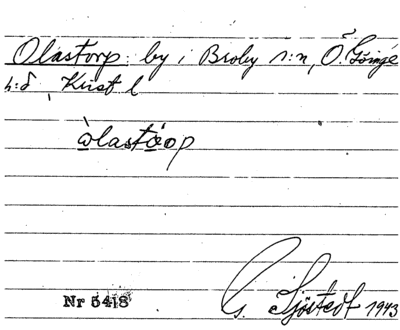 Olastorp: by i Broby s:n, Ö. Göinge
h:d, Krist l
òlastó̤op
Nr 5418
G. Sjöstedt 1943